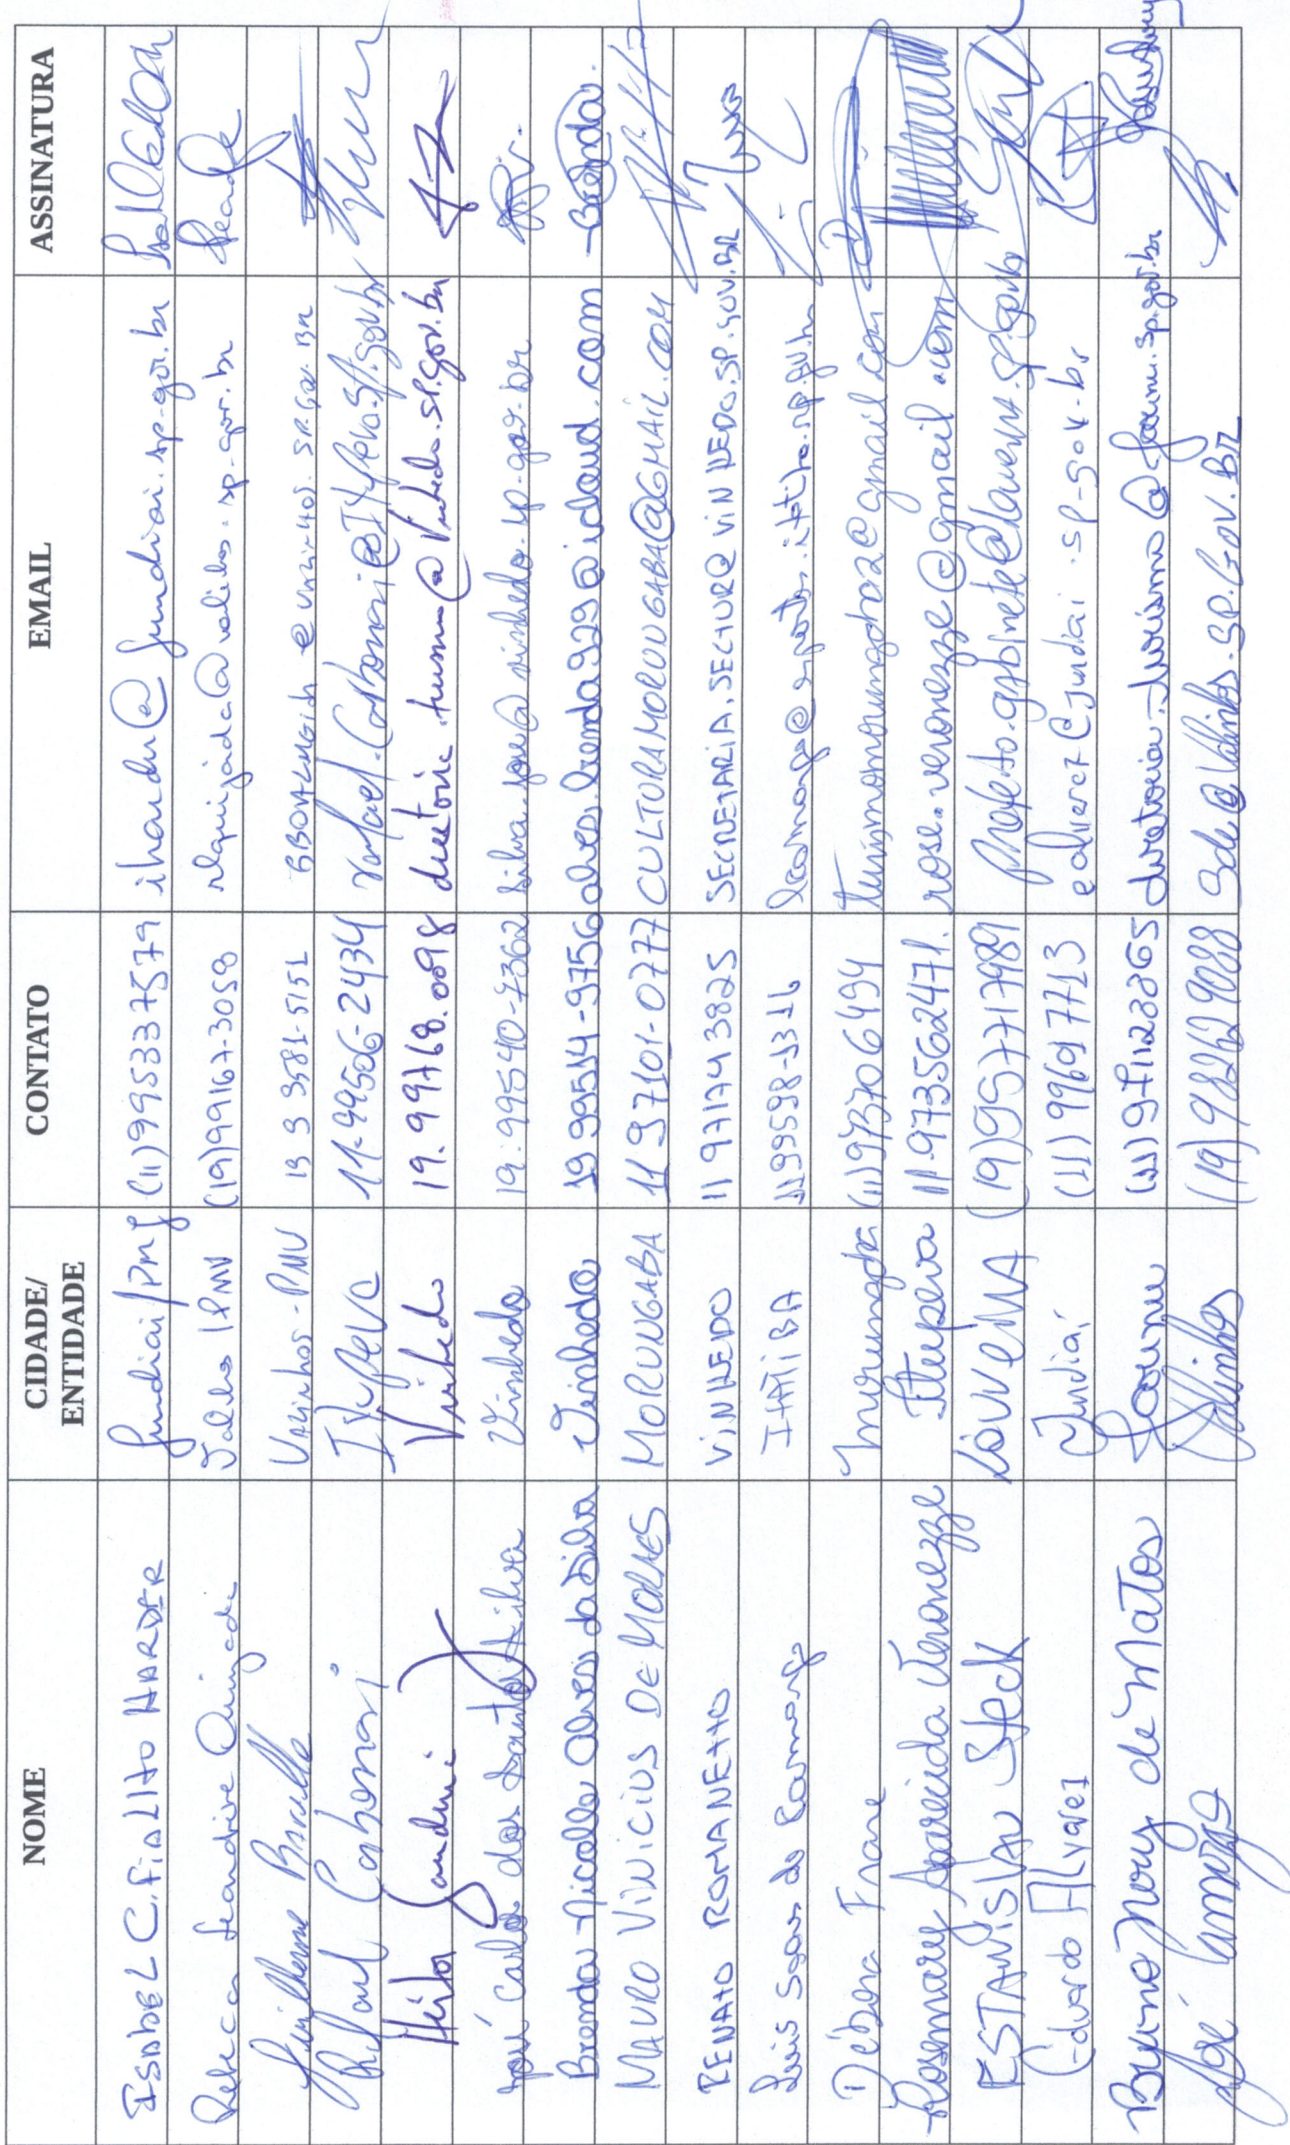 NOME CIDADE/ENTIDADE CONTATO EMAIL ASSINATURA
ISABEL C. FIALHO HARDER Jundiaí/PMJ (11)995337579 iharder@jundiai.sp.gov.br
Rebeca Leandrine Quinjada Valinhos/PMV (19)99167-3058 rlquinjada@valinhos.sp.gov.br
Guilherme Valinhos-PMV 19 3981-5151
Rafael Carbonari Itupeva 11-99506-2434 rafael.carbonari@itupeva.sp.gov.br
Heitor Vinhedo 19.99768.0098 diretoria.turismo@vinhedo.sp.gov.br
José Carlos dos Santos Silva Vinhedo 19.99540-7362 silva.jose@vinhedo.sp.gov.br
Brenda Nicolle Alves da Silva Vinhedo 19 99514-9756 alves.brenda929@icloud.com Brenda.
MAURO VINICIUS DE MORAES MORUNGABA 11 97101-0777 CULTURAMORUNGABA@GMAIL.COM
RENATO ROMANETTO VINHEDO 11 971743825 SECRETARIA.SECTUR@VINHEDO.SP.GOV.BR
Luis Soares de Camargo ITATIBA 11 99598-1316
Débora Frare Morungaba (11)973706494 turismomorungaba2@gmail.com
Rosemary Aparecida Veronezze Itupeva 11-973562471. rose.veronezze@gmail.com
ESTANISLAU Steck LOUVEIRA (19)9957717989 prefeito.gabinete@louveira.sp.gov.br
Eduardo Alvarez Jundiaí (11) 996917713 ealvarez@jundiai.sp.gov.br
Bruno Nory de Matos Jarinu (11) 971123365 diretoria.turismo@jarinu.sp.gov.br
José Valinhos (19) 982629088 Sde@Valinhos.SP.GOV.BR